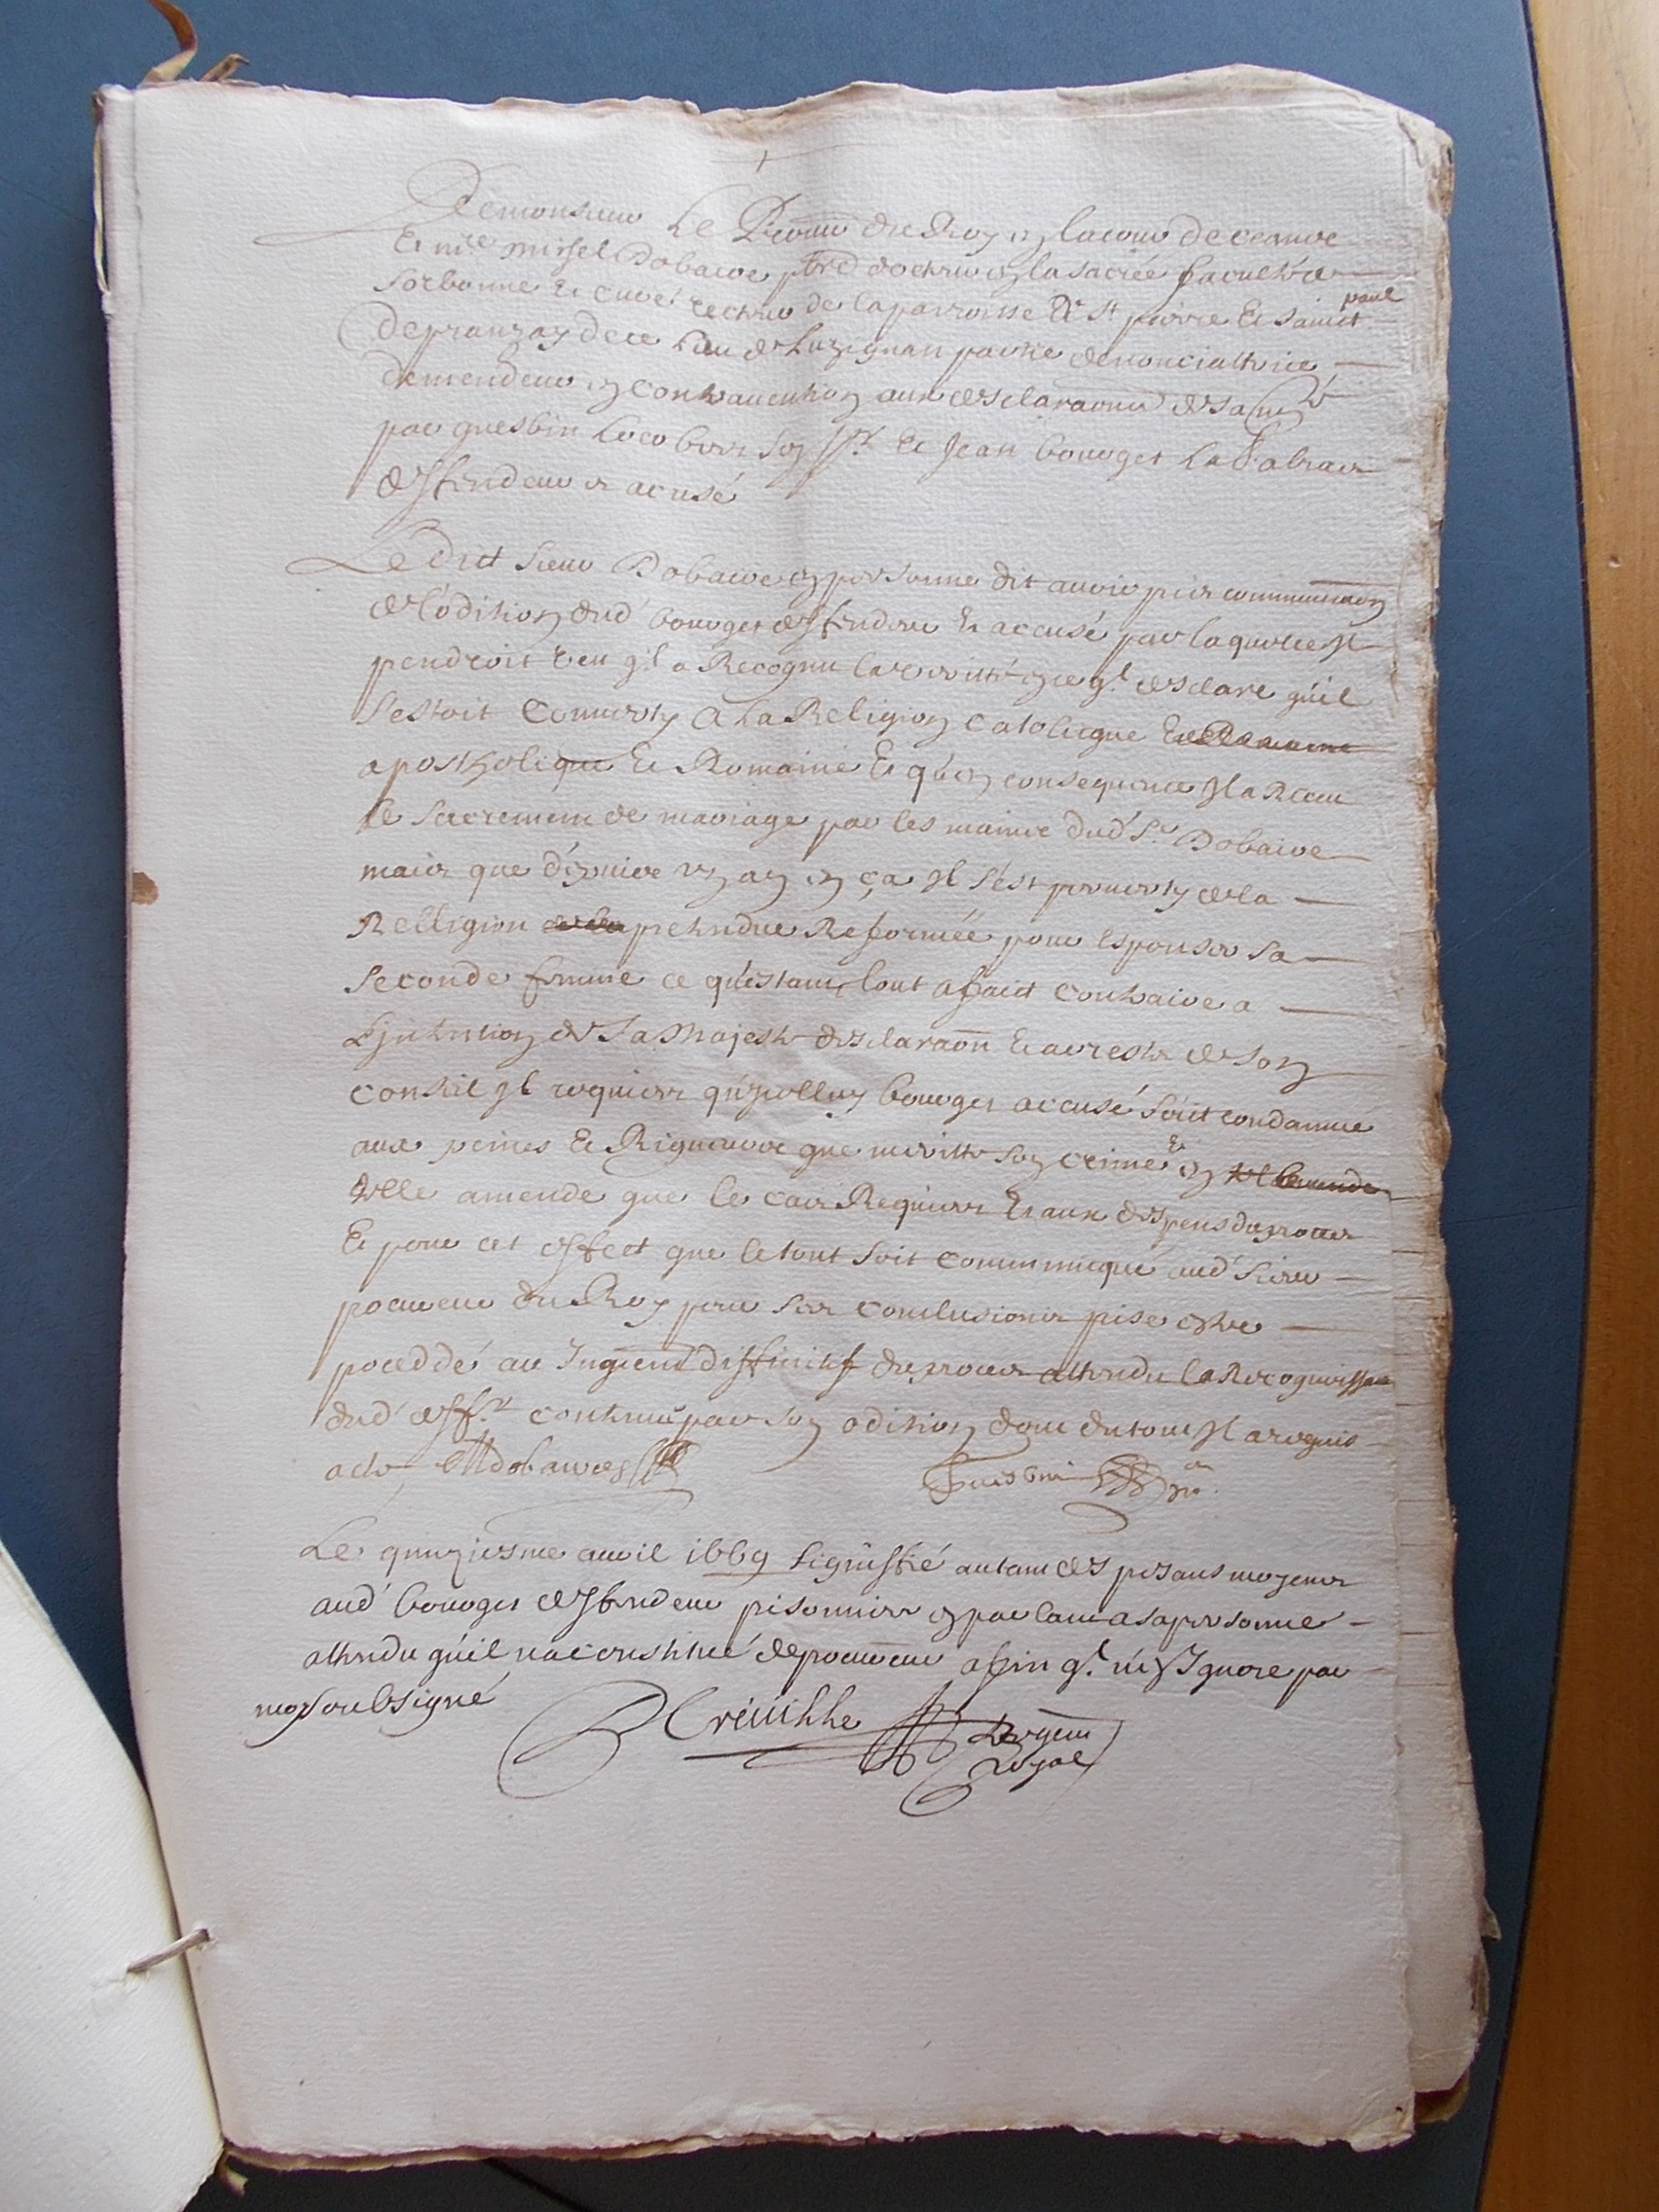 De monsieur Le Procureur du Roy en la cour de ceans
Et mre missel Dobaire ptre docteur en la sacrée faculté de
Sorbonne Et curé recteur de la parroisse de St pierre Et sainct paul
de pranzay de ce lieu de Luzignan partie denonciatrice
demendeur en contrauention aux desclaraons de sa
par guesbin Loco bort son Et Jean bouoges
deffendeur et acusé
Le dict sieur Dobaire en personne dit auoir pris communicaon
de l'odition dud bouoges deffendeur Et accusé par laquelle Il
pendroit veu ql a Recognu la veritté en ce ql desclare quil
sestoit conuerty A la Religion catolicque
aposthollique Et Romaine Et qu'en consequence Il a Receu
le sacrement de mariage par les mains dud Sr Dobaire
mais que depuis un an en ça Il s'est peruerty de la
Relligion pretendue Reformée pour Espouser sa
seconde femme ce qu'estant tout afaict contraire a
L'jntention de Sa Majesté desclaraon Et arrests de son
conseil Il requiert qu'jcelluy bouoges accusé soit condamné
aux peines Et Rigueurs que meritte son crime Et en
telle amende que le cas Requiert Et aux despens du proces
Et pour cet effect que le tout soit communicqué aud sieur
procureur du Roy pour ses conclusions prises estre
proceddé au Jugement deffinitif du proces attendu la Recognoissance
dud deff.r contenue par son odition dont du tout Il a requis
acte MDobaires Guesbin
Le quinziesme auril 1669 signiffié autant des presans moyens
aud bouoges deffendeur prisonnier en parlant a sa personne
attendu qu'il na constitué de procureur affin ql n'en Ignore par
moy soubsigné
Creuihhe Sergent
Royal